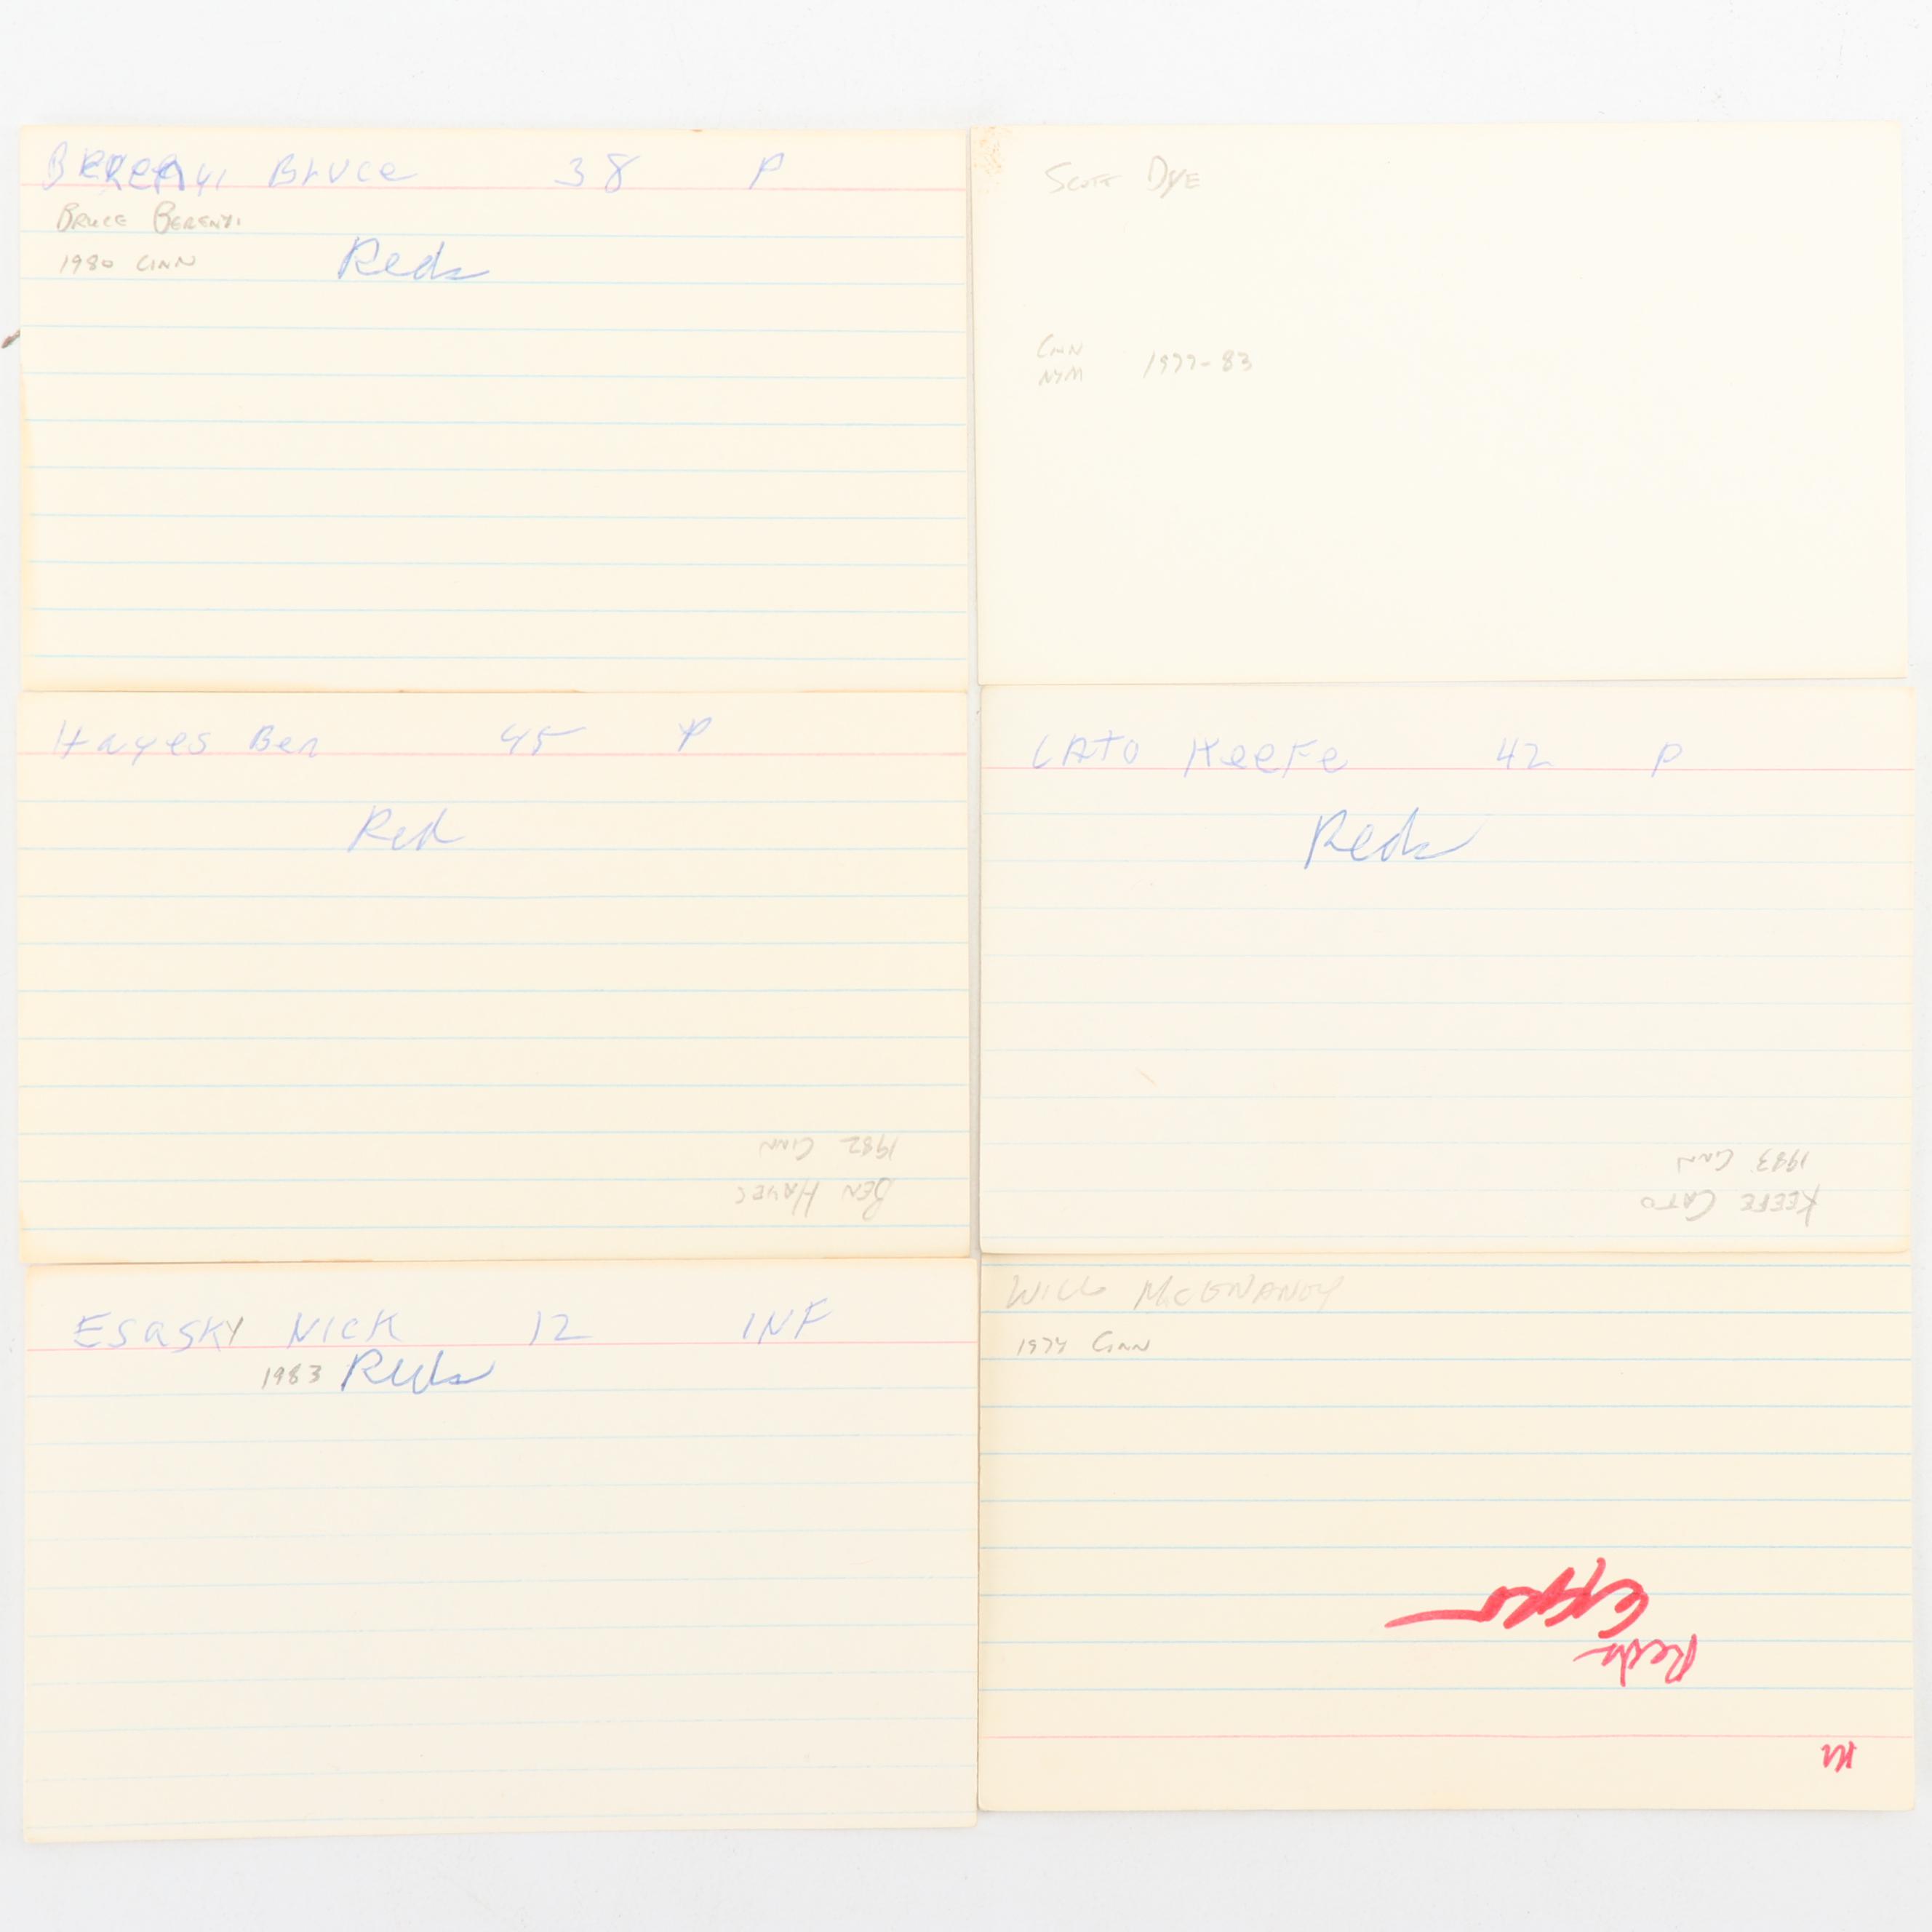 BERENYI Bruce 38 P
Bruce Berenyi
1980 Cinn
Reds
Scott Dye
Cinn
NYM 1977-83
Hayes Ben 45 P
Red
1982 Cinn
Ben Hayes
CATO KeeFe 42 P
Reds
1983 Cinn
Keefe Cato
ESaSKY NICK 12 INF
1983 Reds
Will McEnaney
1974 Cinn
Reds